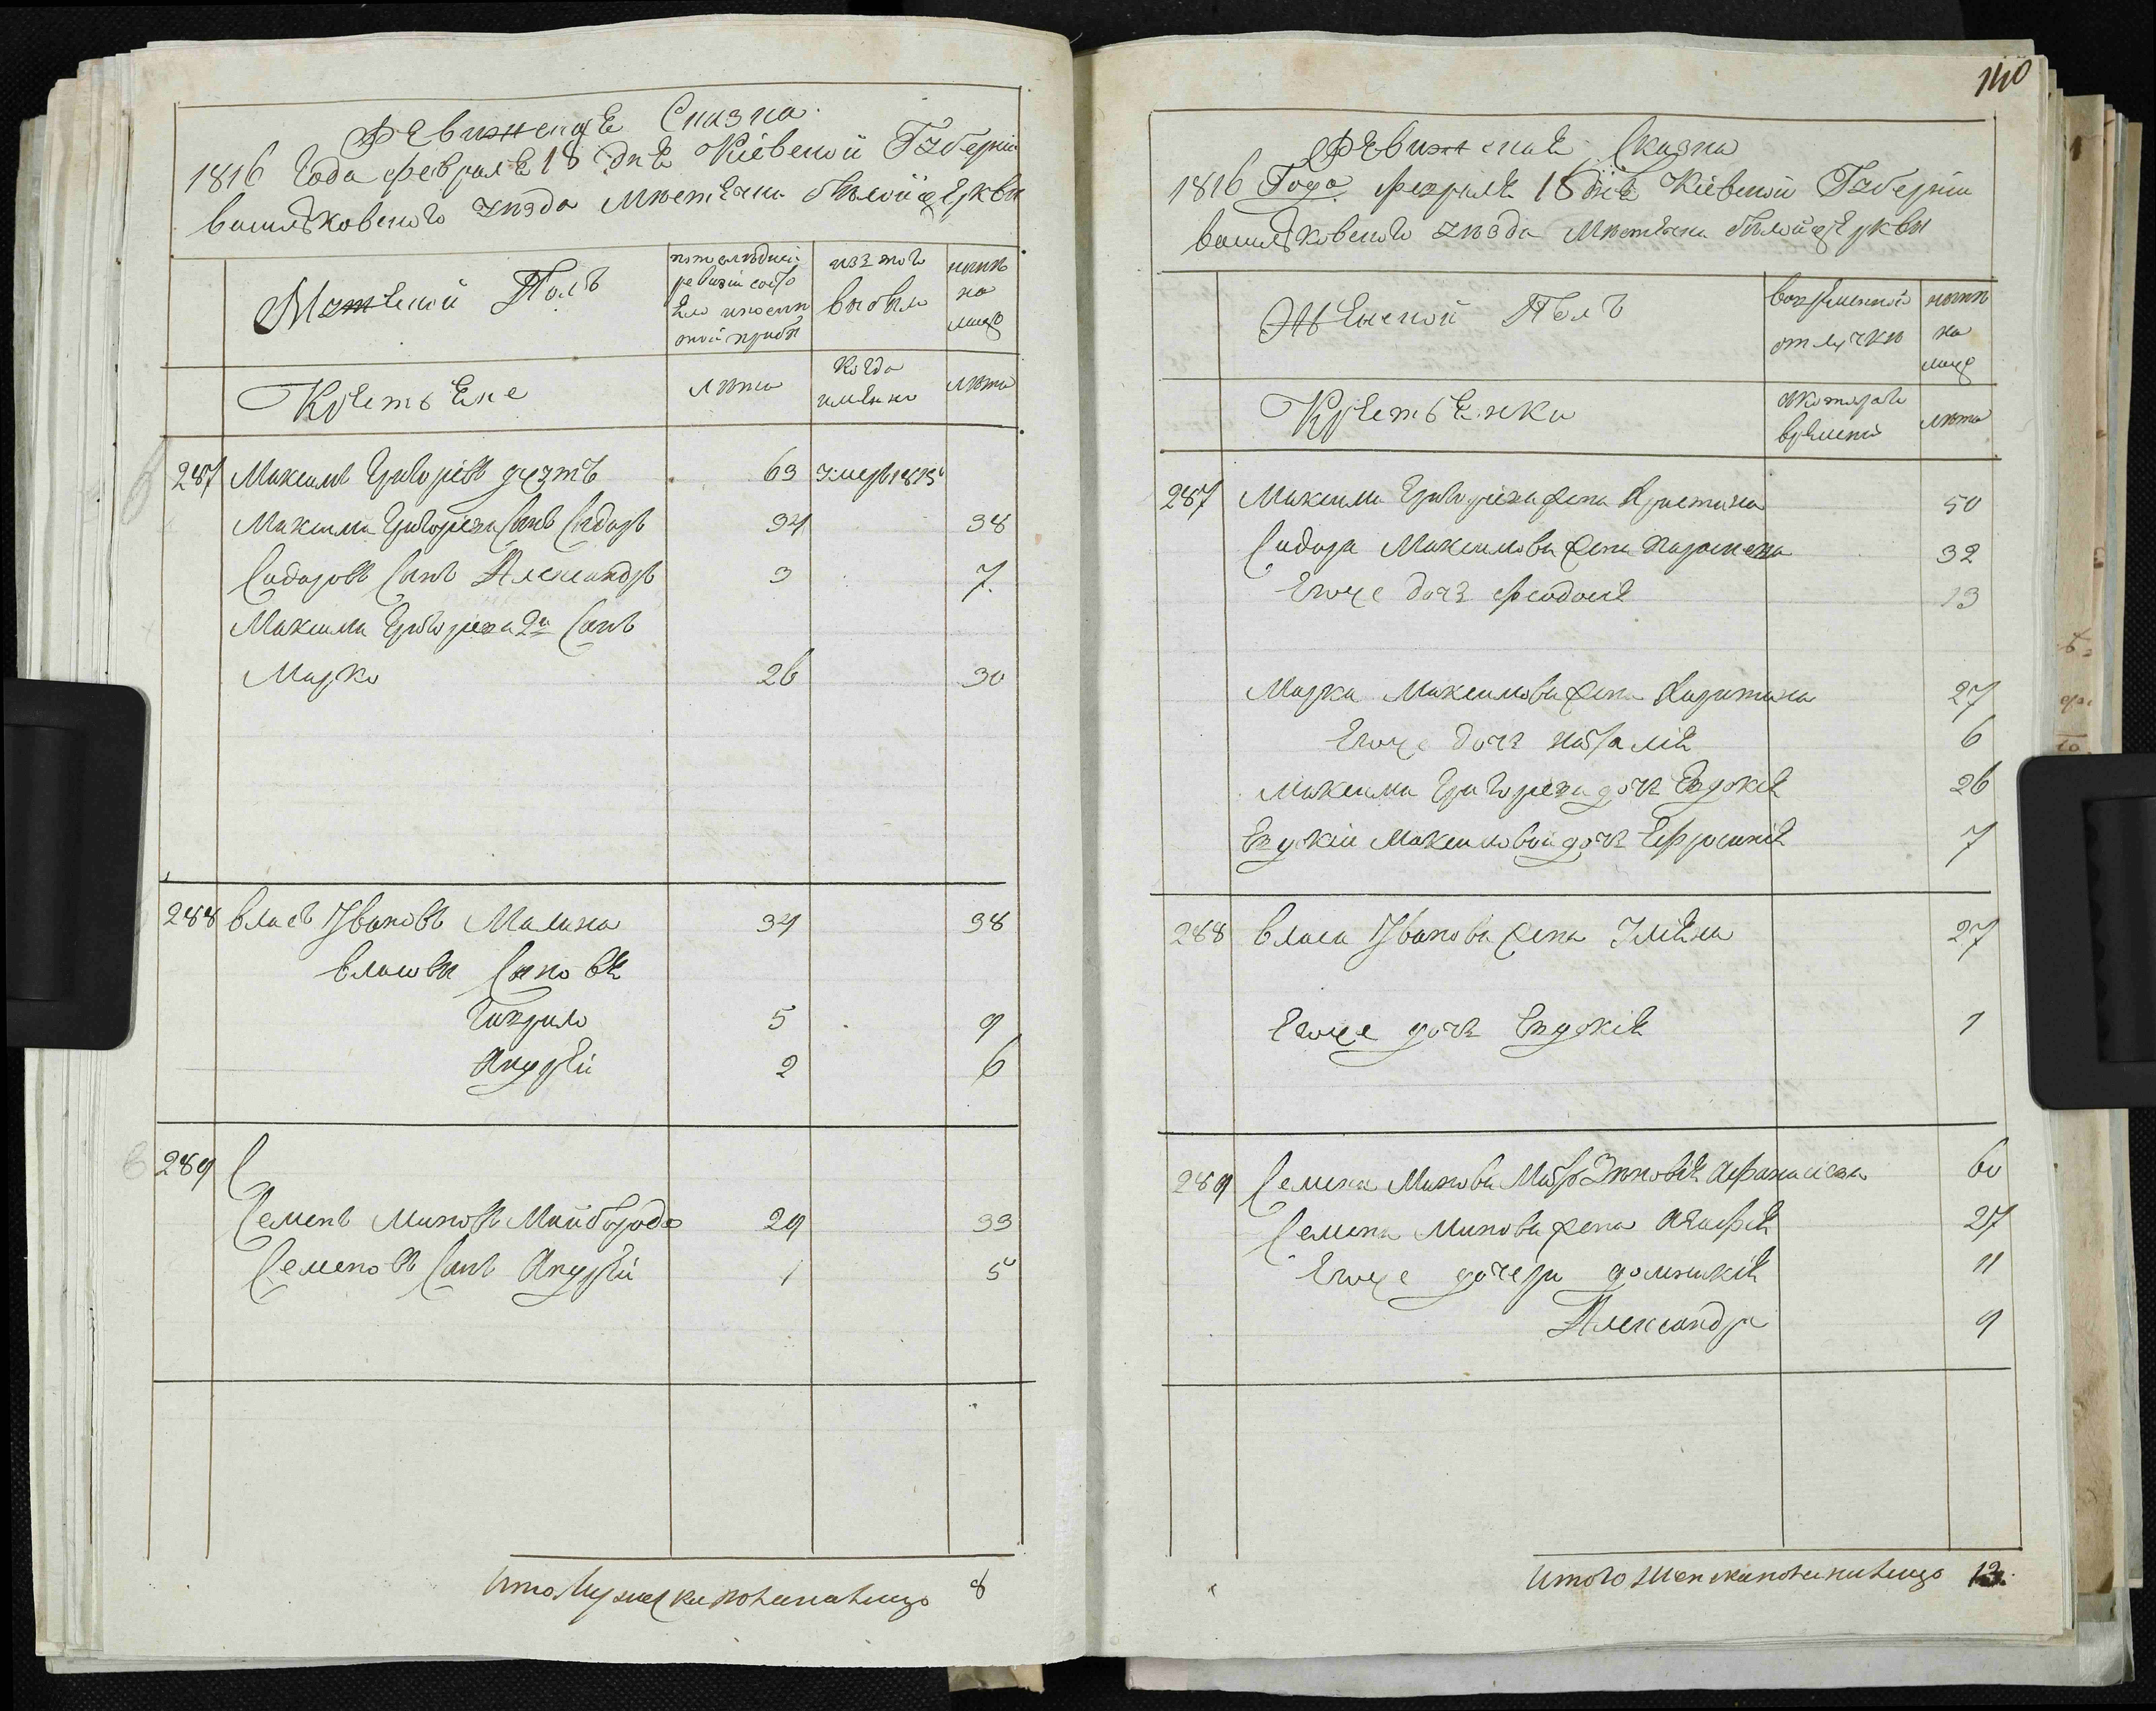 Ревижская Сказка
1816 Года февраля 18 дня Кіевской Губерніи
васильковского уезда местечка белой церкви
Мужеской Полъ
по последней ревизіи состояло и после той прибыло
изъ того выбыло
ныне на лицо
Крестьяне
лета
когда именно
лета
287 Максимъ Григоріевъ 63 умеръ 1815
Максима Григоріева Сынъ Сидоръ 34 38
Сидоровъ Сынъ Александръ 3 7
Максима Григоріева 2й Сынъ
Марко 26 30
288 власъ Ивановъ Малина 34 38
власовы Сыновья
Гаврило 5 9
Андрей 2 6
289
Семенъ Миновъ Майборода 29 33
Семеновъ Сынъ Андрей 1 5
Итого мужеска пола налицо 8
140
Ревижская Сказка
1816 Года февраля 18 дня Кіевской Губерніи
васильковского уезда местечка белой церкви
Женской Полъ
во временной отлучке
ныне на лице
Крестьянки
с котораго времени
лета
287 Максима Григоріева жена Кристина 50
Сидора Максимова жена Параскева 32
Егоже дочь Феодосія 13
Марка Максимова жена Харитина 27
Егоже дочь Наталія 6
Максима Григоріева дочь Евдокія 26
Евдокіи Максимовой дочь Ефросинія 7
288 власа Иванова жена Уліяна 27
Егоже дочь Евдокія 1
289 Семена Минова Мать Зиновія Афанасіева 60
Семена Минова жена Агафія 27
Егоже дочери домникія 11
Александра 9
Итого женска пола налицо 13.